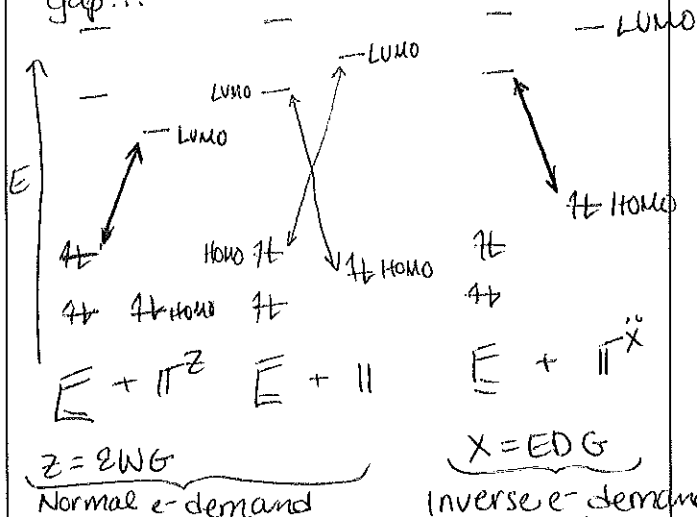 gap...
LUMO
LUMO
LUMO
LUMO
E
HOMO
HOMO
HOMO
HOMO
+ Z + || + Ẍ
Z = EWG
X = EDG
Normal e- demand
Inverse e- demand